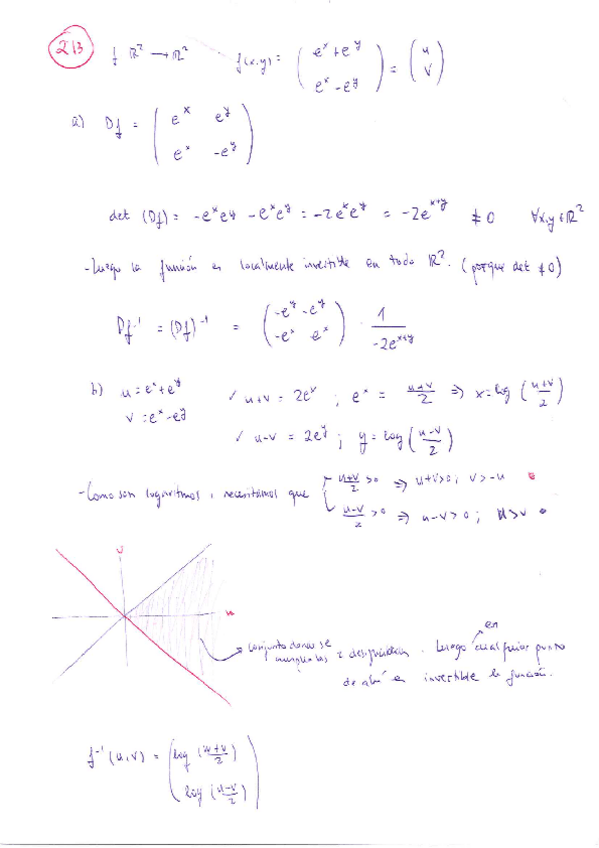 213 f ℝ² → ℝ² f(x,y) = ( e^x + e^y ; e^x - e^y ) = ( u ; v )
a) Df = ( e^x e^y ; e^x -e^y )
det (Df) = -e^x e^y - e^x e^y = -2e^x e^y = -2e^{x+y} ≠ 0 ∀x,y ∈ ℝ²
- Luego la función es localmente invertible en todo ℝ². (porque det ≠ 0)
Df⁻¹ = (Df)⁻¹ = ( -e^y -e^y ; -e^x e^x ) · 1/(-2e^{x+y})
b) u = e^x + e^y ✓ u+v = 2e^x ; e^x = (u+v)/2 ⇒ x = log ( (u+v)/2 )
v = e^x - e^y ✓ u-v = 2e^y ; y = log ( (u-v)/2 )
- Como son logaritmos, necesitamos que { (u+v)/2 > 0 ⇒ u+v > 0 ; v > -u
(u-v)/2 > 0 ⇒ u-v > 0 ; u > v
v
u
conjunto donde se
cumplen las 2 desigualdades. Luego en cualquier punto
de ahí es invertible la función.
f⁻¹(u,v) = ( log ( (u+v)/2 ) ; log ( (u-v)/2 ) )